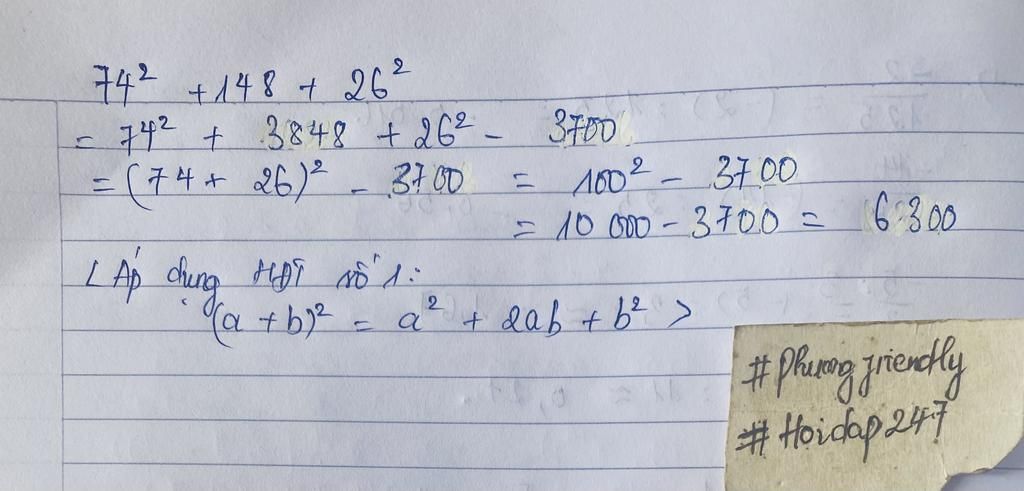 74² + 148 + 26²
= 74² + 3848 + 26² - 3700
= (74 + 26)² - 3700 = 100² - 3700
= 10 000 - 3700 = 6300
< Áp dụng HĐT số 1:
(a + b)² = a² + 2ab + b² >
# Phuong friendly
# Hoidap 247